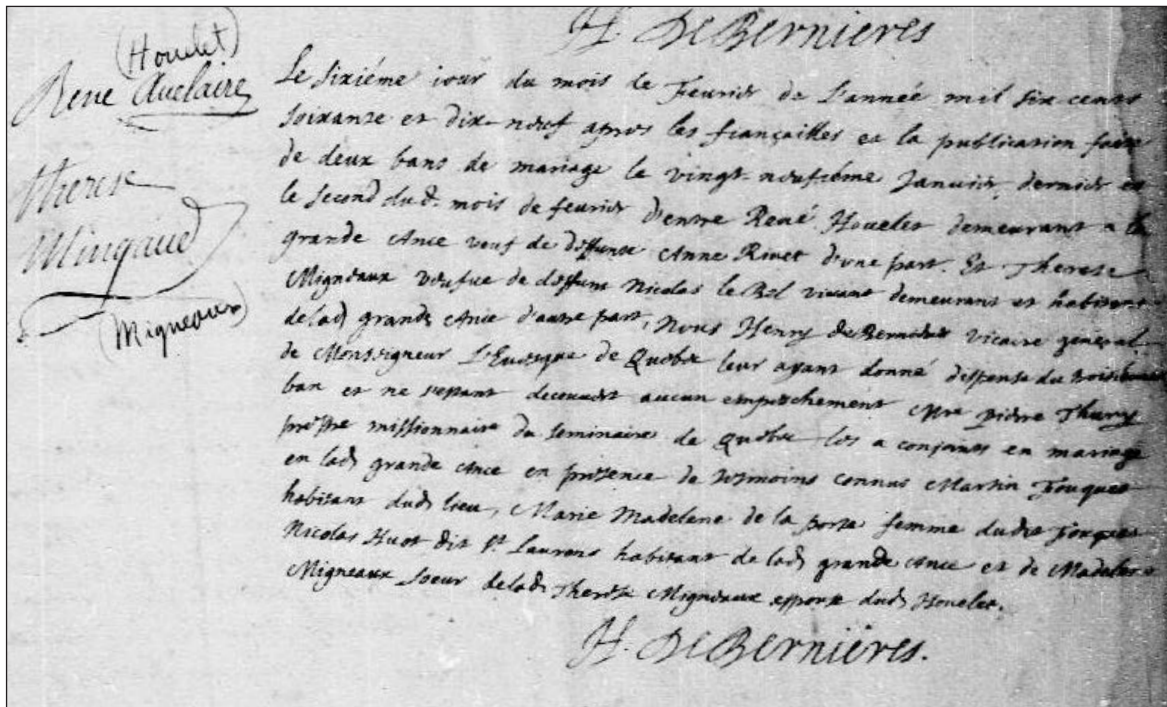 H. DeBernieres
(Houelet)
René Auclaire
Therese
Mingaud
(Migneaux)
Le sixiéme iour du mois de Feurier de L'année mil six cents
soixante et dix-neuf apres les françailles et la publication faite
de deux bans de mariage le vingt-neufiéme Januier dernier et
le second dud. mois de feurier d'entre René Houelet demeurant a la
grande Ance veuf de deffunte Anne Riuet d'une part. Et Therese
Migneaux veufue de deffunt Nicolas le Bel viuant demeurant et habitant
de lad. grande Ance d'autre part, Nous Henry de Bernieres vicaire général
de Monseigneur L'Euesque de Quebec leur ayant donné dispense du troisiéme
ban et ne s'estant decouuert aucun empeschement Mre Pierre Thury
prestre missionnaire du seminaire de Quebec les a conjoints en mariage
en lad. grande Ance en présence de tesmoins connus Martin Fouquet
habitant dud. lieu, Marie Madelene de la porte femme dudit Fouquet
Nicolas Huot dit St Laurens habitant de lad. grande Ance et de Madelene
Migneaux soeur de lad. Therese Migneaux espouse dud. Houelet.
H. DeBernieres.